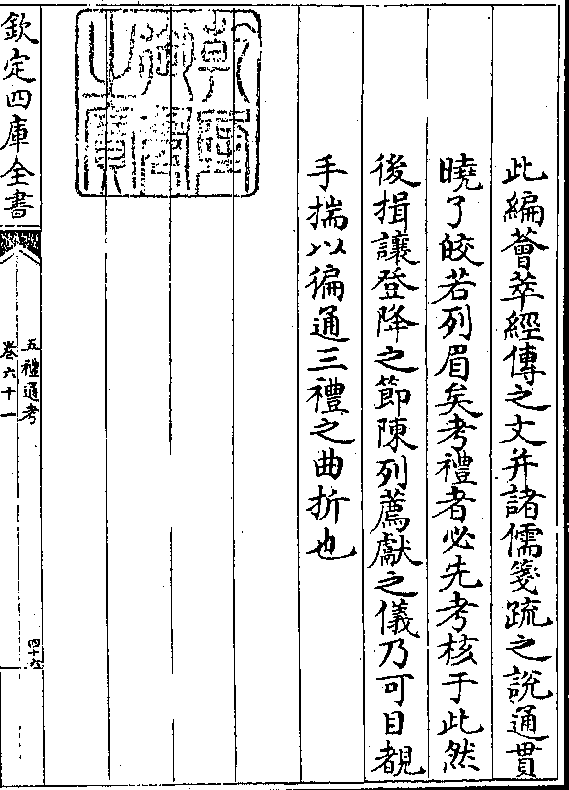 此編薈萃經傳之文并諸儒箋疏之說通貫
曉了皎若列眉矣考禮者必先考核于此然
後揖讓登降之節陳列薦獻之儀乃可目覩
手揣以徧通三禮之曲折也
乾隆御覽之寶
欽定四庫全書
五禮通考
卷六十一
四十六